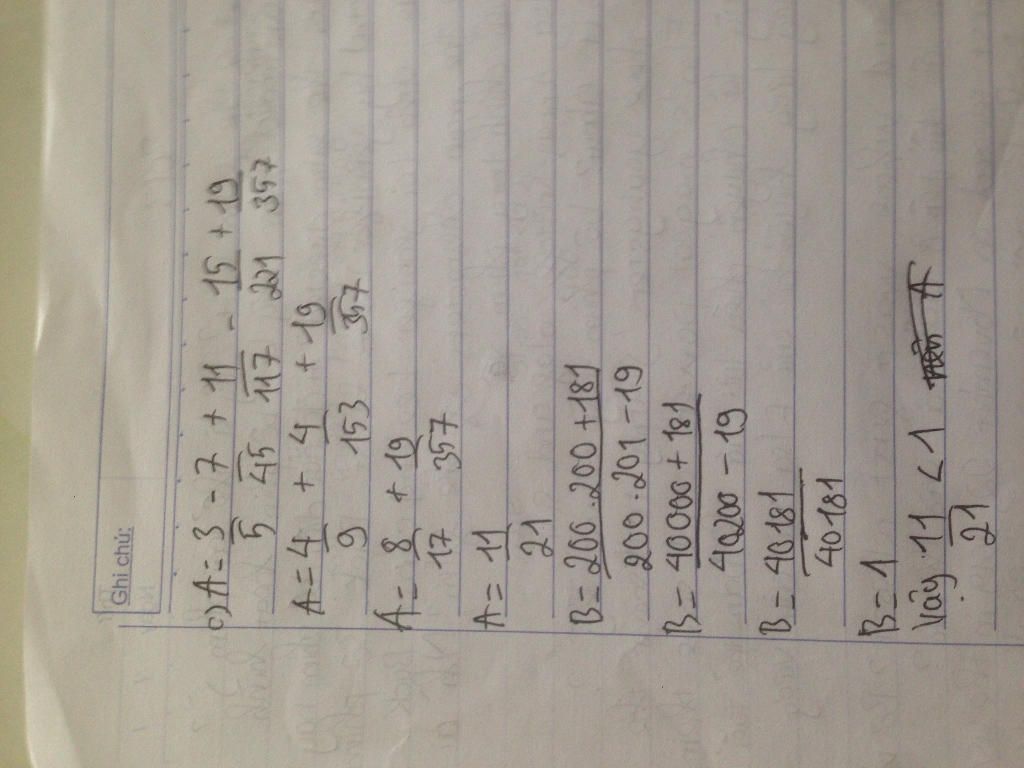 Ghi chú:
c) A = 3/5 - 7/45 + 11/117 - 15/221 + 19/357
A = 4/9 + 4/153 + 19/357
A = 8/17 + 19/357
A = 11/21
B = 200.200+181/200.201-19
B = 40000+181/40200-19
B = 40181/40181
B = 1
Vậy 11/21 < 1 A